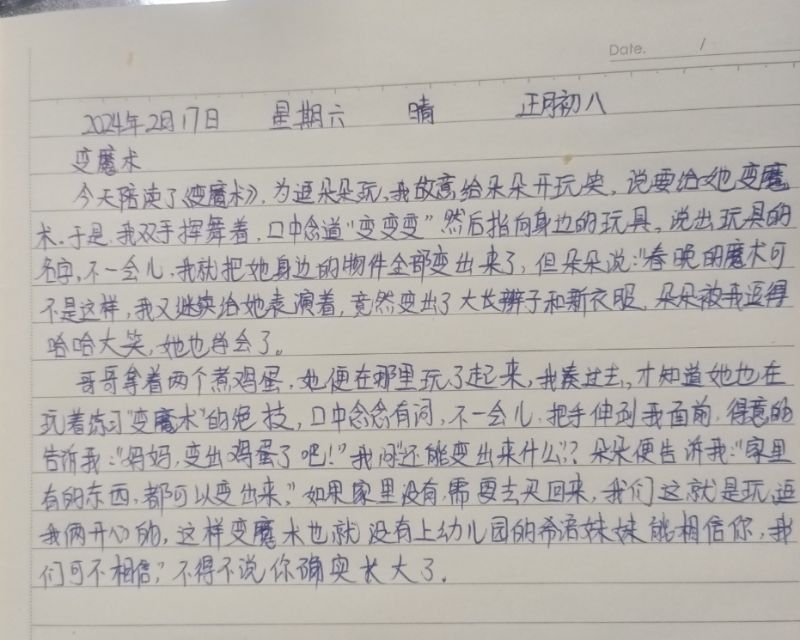 Date. /
2024年2月17日 星期六 晴 正月初八
变魔术
今天陪读了《变魔术》,为逗朵朵玩,我故意给朵朵开玩笑,说要给她变魔
术,于是,我双手挥舞着,口中念道“变变变”然后指向身边的玩具,说出玩具的
名字,不一会儿,我就把她身边的物件全部变出来了,但朵朵说:“春晚的魔术可
不是这样,我又继续给她表演着,竟然变出了大长辫子和新衣服,朵朵被我逗得
哈哈大笑,她也学会了。
哥哥拿着两个煮鸡蛋,她便在那里玩了起来,我凑过去,才知道她也在
玩着练习“变魔术”的绝技,口中念念有词,不一会儿,把手伸到我面前,得意的
告诉我:“妈妈,变出鸡蛋了吧!”我问“还能变出来什么”?朵朵便告诉我:“家里
有的东西,都可以变出来,”如果家里没有,需要去买回来,我们这就是玩,逗
我俩开心的,这样变魔术也就没有上幼儿园的希语妹妹能相信你,我
们可不相信,”不得不说你确实长大了.